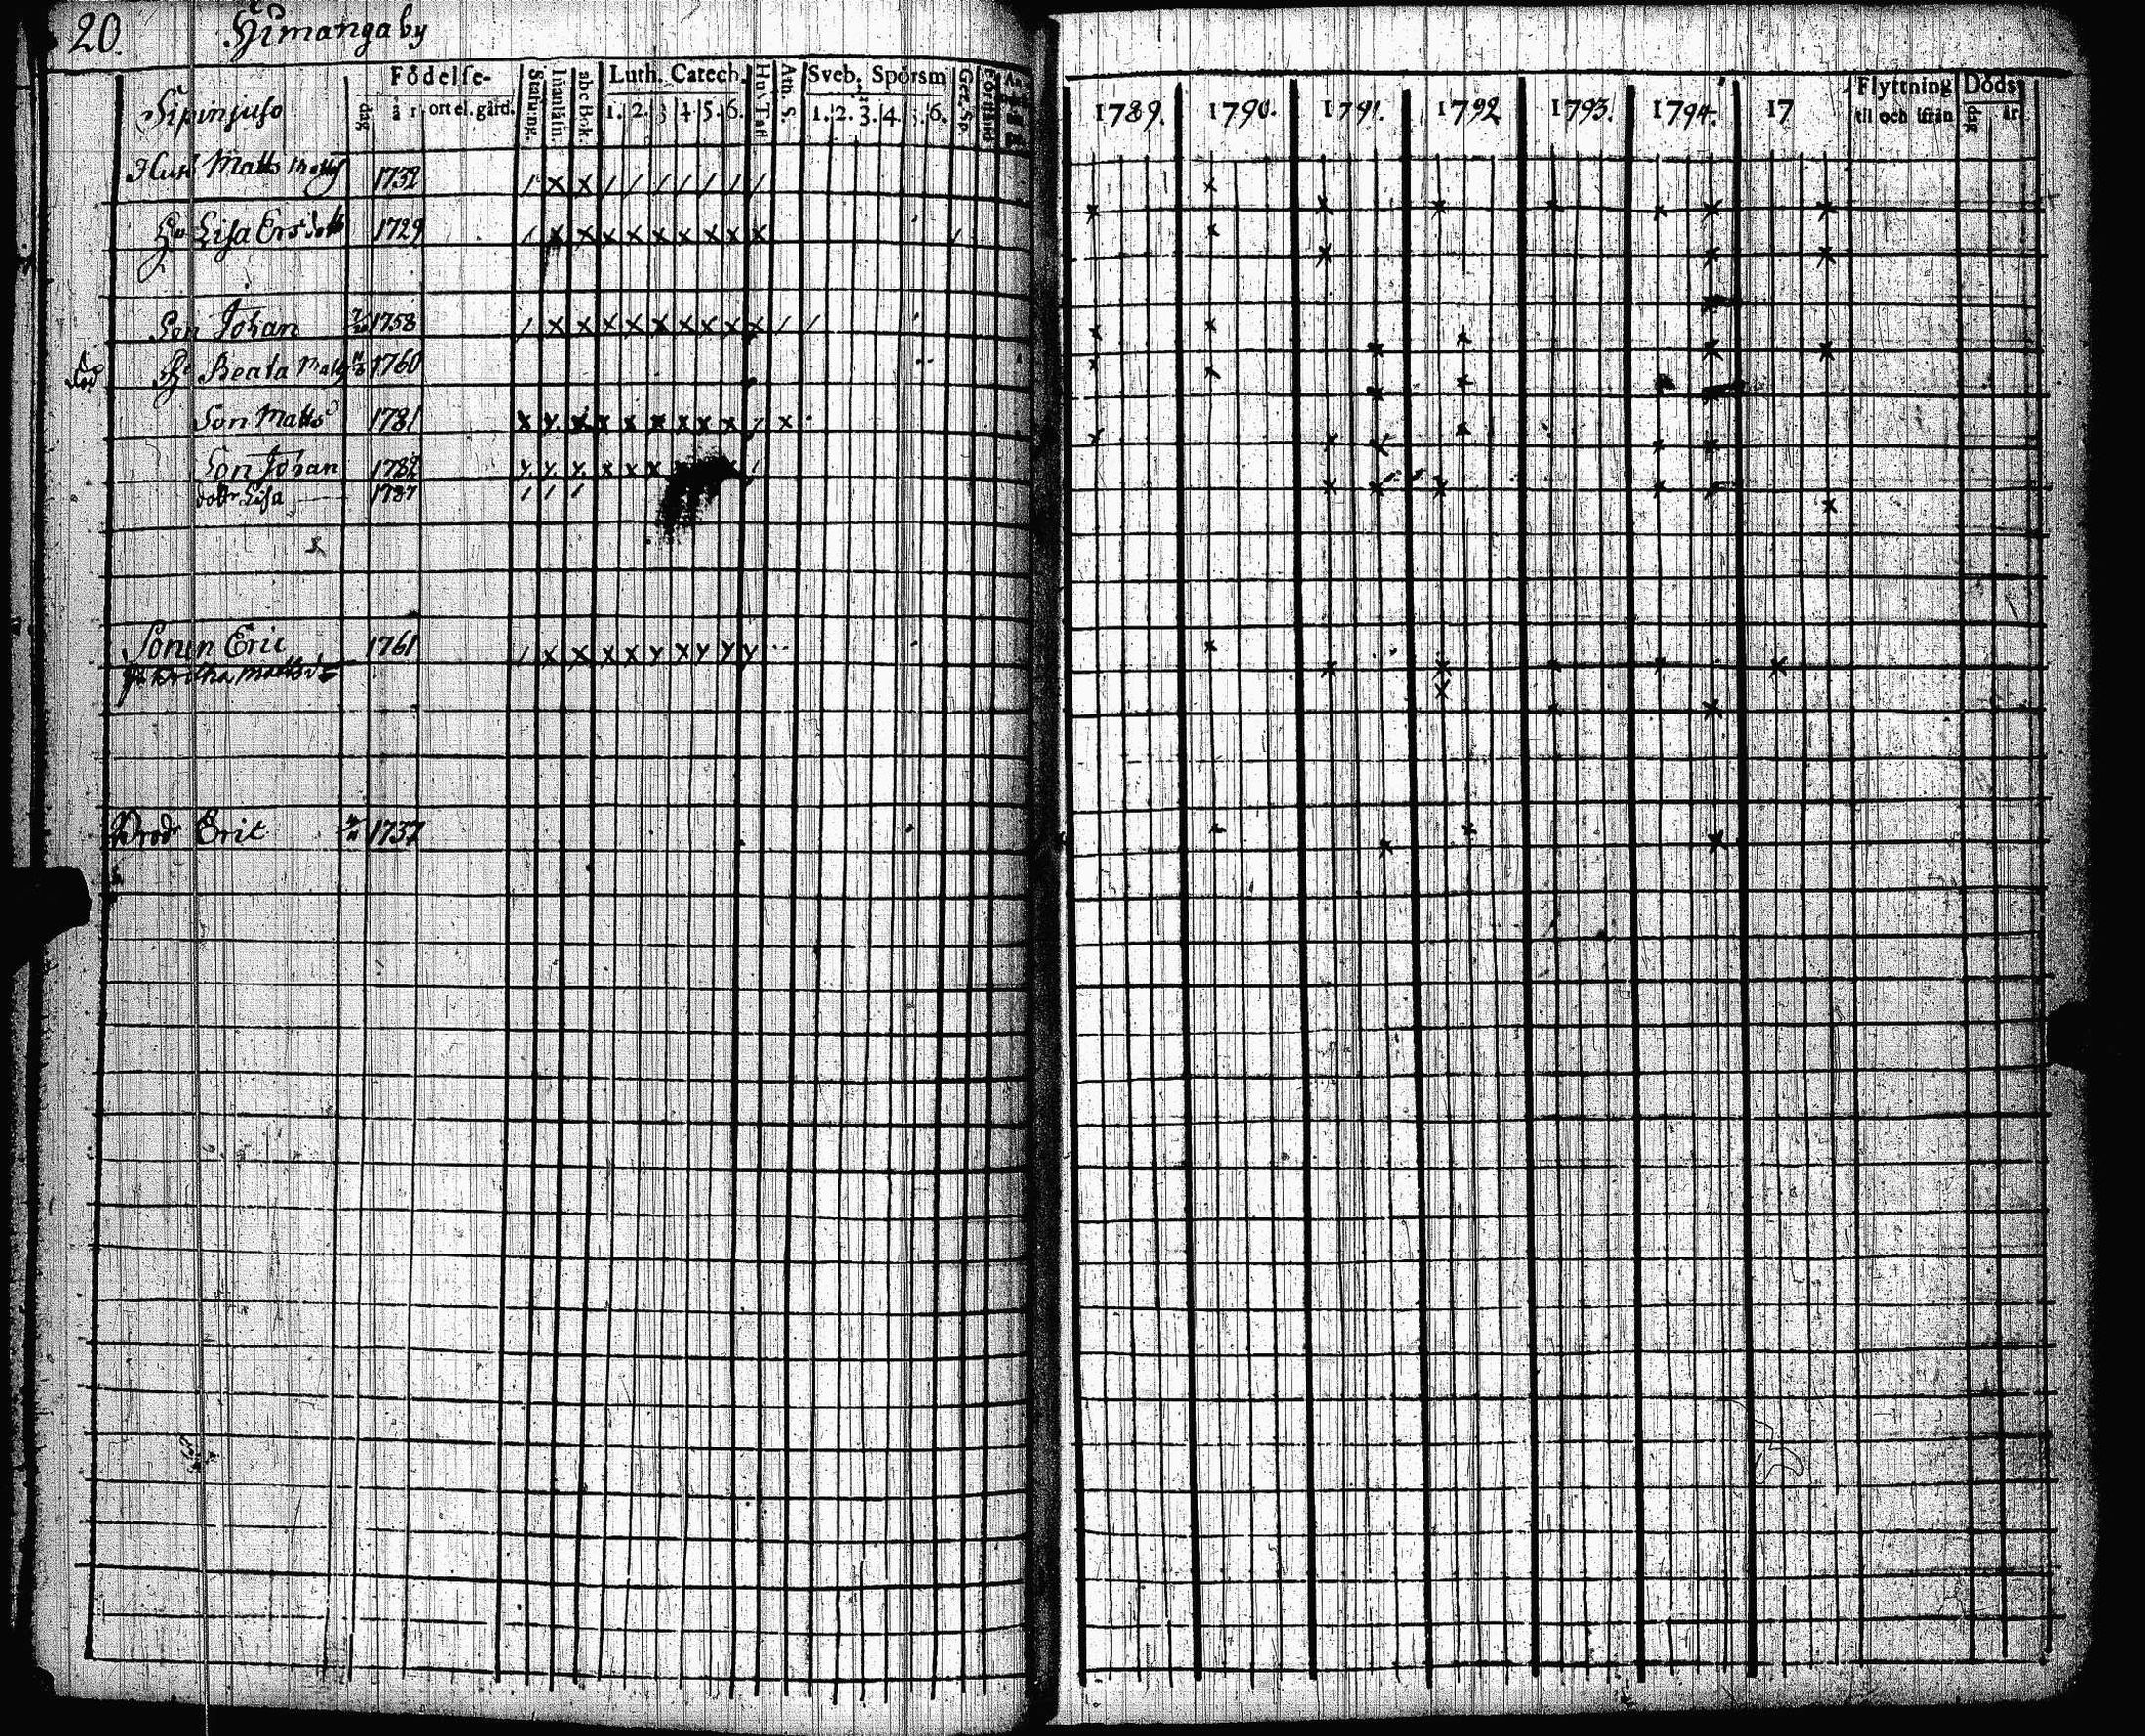 20. Himanga by
Födelse- Stafning. Innanläsn. abc Bok. Luth. Catech. Hus Tafl. Ath. S. Sveb. Spörsm Ger. Sp. Förstånd
dag år ort el. gård. 1. 2. 3 4. 5. 6. 1. 2. 3. 4. 5. 6.
1789. 1790. 1791. 1792 1793. 1794. 17 Flyttning Döds
til och ifrån dag år
Sipinjuso
Matts Matts 1732
Hu Lisa Ersdotr 1729
Son Johan 1758
död Hu Beata Matts 1760
Son Matts 1781
Son Johan 1782
dottr Lisa 1787
Sonen Eric 1761
Hu Britha Mattsdr
Brodr Erik 1737